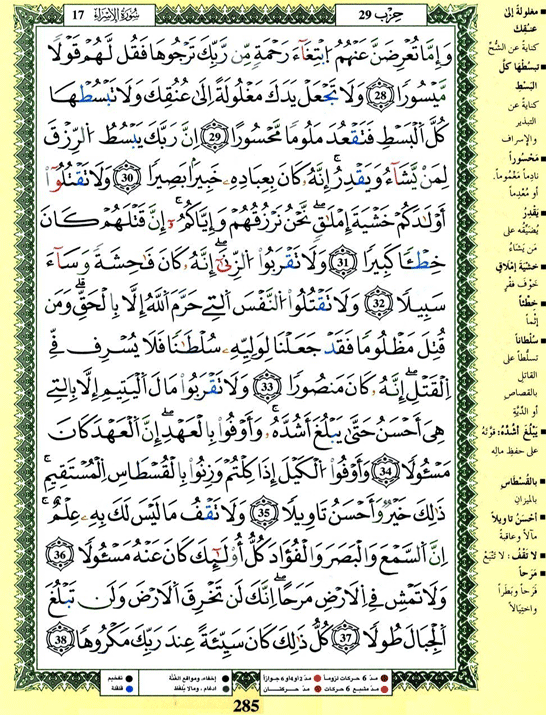 17 سُورَةُ الإِسْرَاءِ
حِزْب 29
وَإِمَّا تُعْرِضَنَّ عَنْهُمُ اُبْتِغَآءَ رَحْمَةٍ مِّن رَّبِّكَ تَرْجُوهَا فَقُل لَّهُمْ قَوْلًا
مَّيْسُورًا 28 وَلَا تَجْعَلْ يَدَكَ مَغْلُولَةً اِلَىٰ عُنُقِكَ وَلَا تَبْسُطْهَا
كُلَّ اَلْبَسْطِ فَتَقْعُدَ مَلُومًا مَّحْسُورًا 29 اِنَّ رَبَّكَ يَبْسُطُ اُلرِّزْقَ
لِمَنْ يَّشَآءُ وَيَقْدِرُ إِنَّهُۥ كَانَ بِعِبَادِهِۦ خَبِيرَۢا بَصِيرًا 30 وَلَا تَقْتُلُوٓا
أَوْلَٰدَكُمْ خَشْيَةَ إِمْلَٰقٍ نَّحْنُ نَرْزُقُهُمْ وَإِيَّاكُمُۥٓ إِنَّ قَتْلَهُمْ كَانَ
خِطْـًٔا كَبِيرًا 31 وَلَا تَقْرَبُوا اُلزِّنَىٰٓ إِنَّهُۥ كَانَ فَٰحِشَةً وَسَآءَ
سَبِيلًا 32 وَلَا تَقْتُلُوا اُلنَّفْسَ اَلتِے حَرَّمَ اَللَّهُ إِلَّا بِالْحَقِّ وَمَن
قُتِلَ مَظْلُومًا فَقَد جَّعَلْنَا لِوَلِيِّهِۦ سُلْطَٰنًا فَلَا يُسْرِف فِّے
اِلْقَتْلِ إِنَّهُۥ كَانَ مَنصُورًا 33 وَلَا تَقْرَبُوا مَالَ اَلْيَتِيمِ إِلَّا بِالتِے
هِىَ أَحْسَنُ حَتَّىٰ يَبْلُغَ أَشُدَّهُۥ وَأَوْفُوا بِالْعَهْدِ إِنَّ اَلْعَهْدَ كَانَ
مَسْـُٔولًا 34 وَأَوْفُوا اُلْكَيْلَ إِذَا كِلْتُمْ وَزِنُوا بِالْقُسْطَاسِ اِلْمُسْتَقِيمِ
ذَٰلِكَ خَيْرٌ وَأَحْسَنُ تَاوِيلًا 35 وَلَا تَقْفُ مَا لَيْسَ لَكَ بِهِۦ عِلْمٌ
اِنَّ اَلسَّمْعَ وَالْبَصَرَ وَالْفُؤَادَ كُلُّ أُوْلَٰٓئِكَ كَانَ عَنْهُ مَسْـُٔولًا 36
وَلَا تَمْشِ فِے اِلَارْضِ مَرَحًا اِنَّكَ لَن تَخْرِقَ اَلَارْضَ وَلَن تَبْلُغَ
اَلْجِبَالَ طُولًا 37 كُلُّ ذَٰلِكَ كَانَ سَيِّئَةً عِندَ رَبِّكَ مَكْرُوهًا 38
مَغلولةً إلى
عنقِك
كنايةً عن الشُّحّ
تبسُطْها كلَّ
البَسْطِ
كنايةً عن
التبذيرِ
والإسراف
مَحْسُوراً
نادِماً مَغْمُوماً،
أو مُعْدِماً
يَقْدِرُ
يُضيّقُه على
مَن يَشاءُ
خَشيَةَ إمْلاقٍ
خَوْفَ فقرٍ
خِطْئاً
إثْماً
سُلْطَاناً
تسلّطاً على
القاتِلِ
بالقصاصِ
أو الدِّيَةِ
يَبْلُغَ أَشُدَّهُ: قوّتَهُ
على حفظِ مالِهِ
بالقُسْطَاسِ
بالميزانِ
أحْسَنُ تَاوِيلاً
مآلاً وعاقبةً
لا تَقْفُ: لا تَتّبِعْ
مَرَحاً
فَرَحاً وبَطَراً
واخْتِيَالاً
مدّ 6 حركات لزوماً مدّ 2 أو 4 أو 6 جوازاً
مدّ مشبع 6 حركات مدّ حركتان
إخفاء، ومواقع الغُنَّة
إدغام، وما لا يُلفظ
تفخيم
قلقلة
285